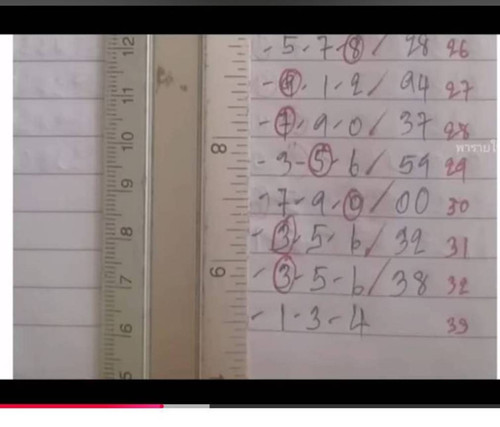 - 5 - 7 - 8 / 28 26
- 9 - 1 - 2 / 94 27
- 7 - 9 - 0 / 37 28
- 3 - 5 - 6 / 59 29
- 7 - 9 - 0 / 00 30
- 3 - 5 - 6 / 32 31
- 3 - 5 - 6 / 38 32
- 1 - 3 - 4 33
12
11
10
9
8
7
6
5
8
6